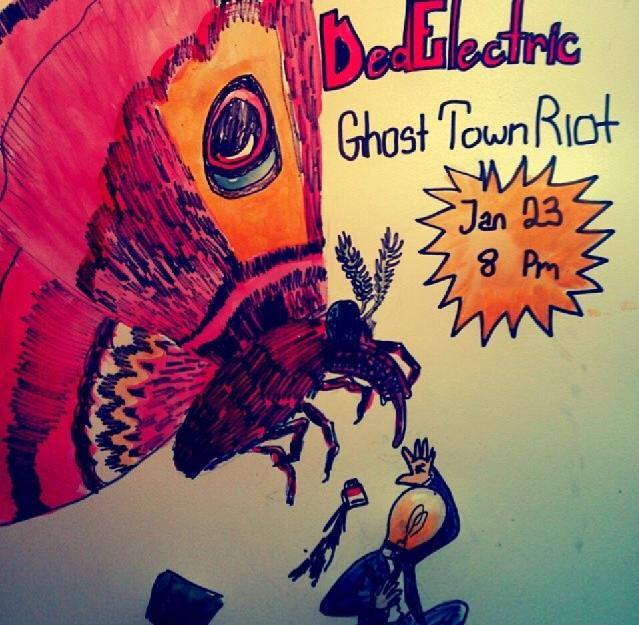 DedElectric
Ghost Town Riot
Jan 23
8 Pm